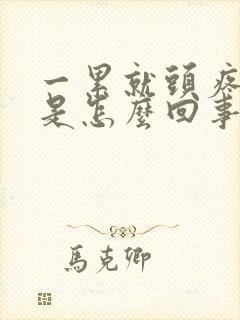 一累就頭疼
是怎麼回事
馬克卿